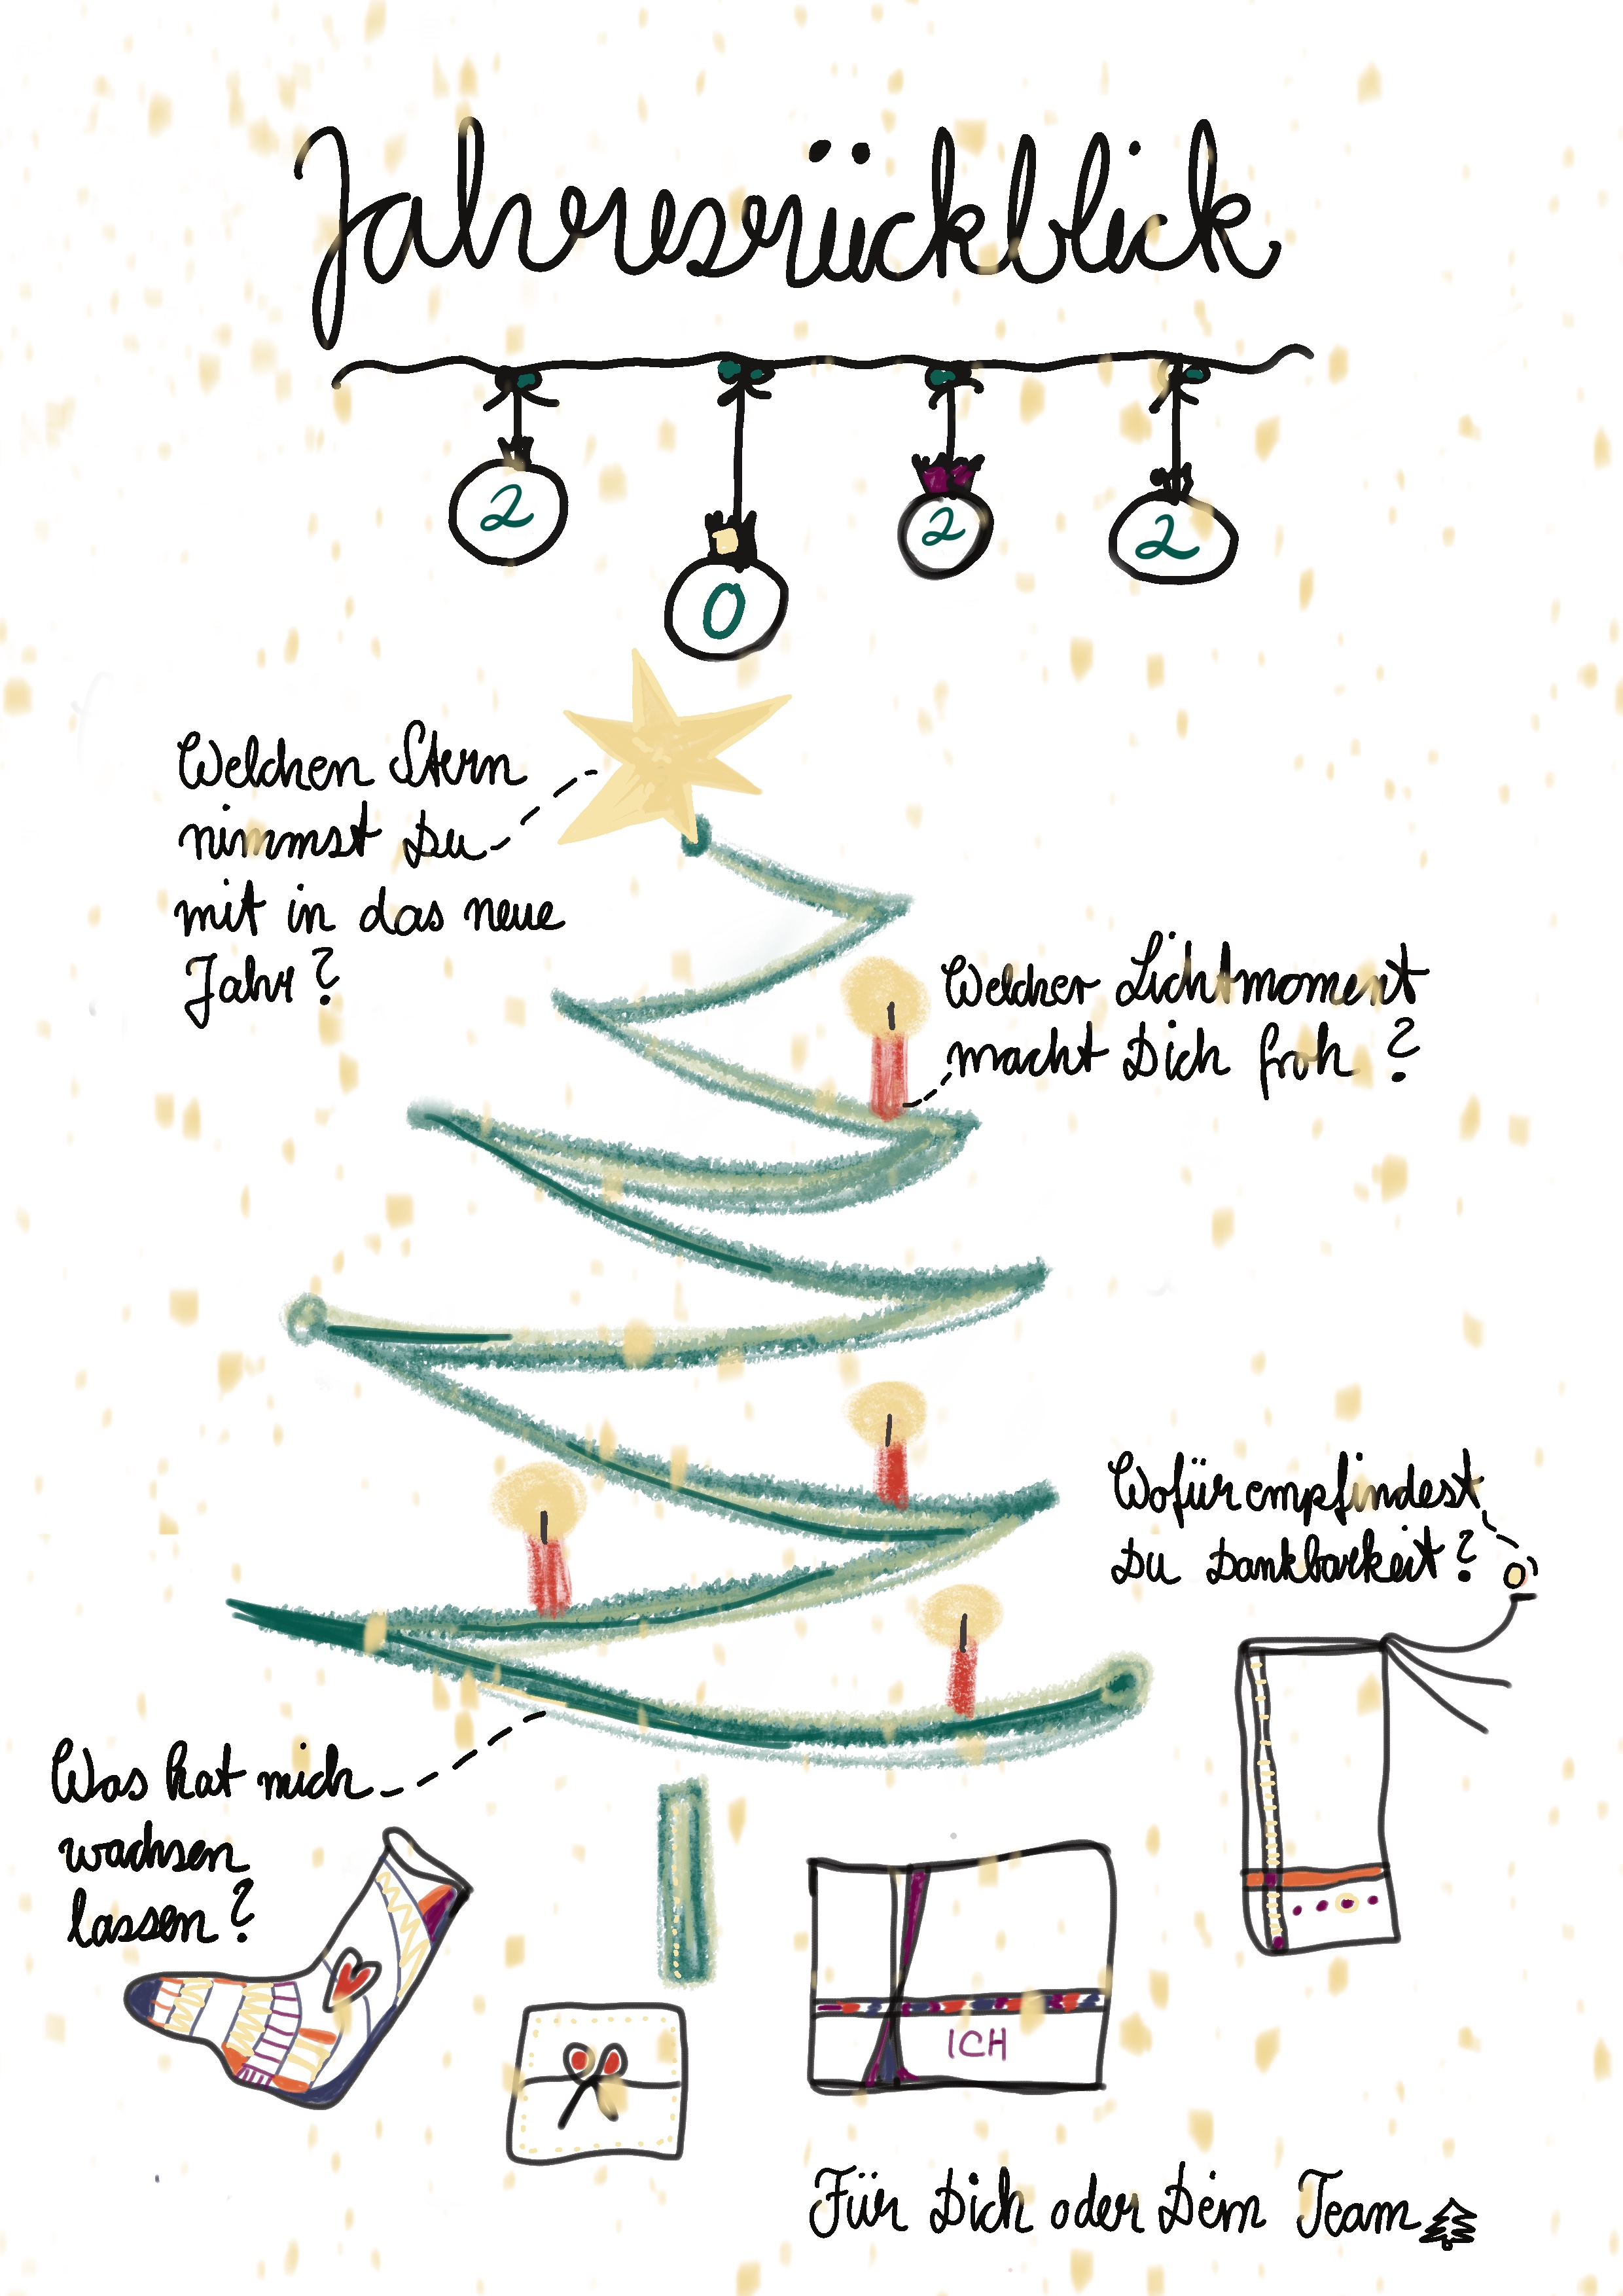 Jahresrückblick
2 0 2 2
Welchen Stern
nimmst Du
mit in das neue
Jahr?
Welcher Lichtmoment
macht Dich froh?
Wofür empfindest
Du Dankbarkeit?
Was hat mich
wachsen
lassen?
ICH
Für Dich oder Dein Team